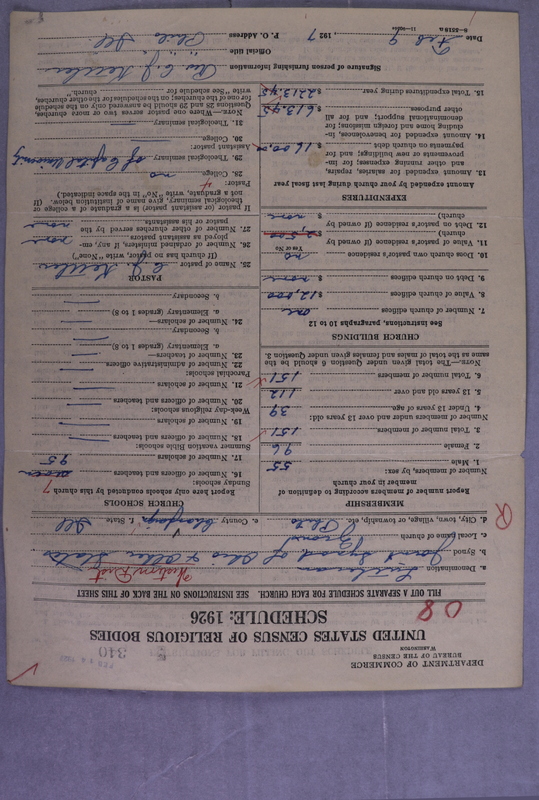 DEPARTMENT OF COMMERCE
BUREAU OF THE CENSUS
WASHINGTON
340
UNITED STATES CENSUS OF RELIGIOUS BODIES
SCHEDULE: 1926
08
FILL OUT A SEPARATE SCHEDULE FOR EACH CHURCH. SEE INSTRUCTIONS ON THE BACK OF THIS SHEET
a. Denomination Lutheran
b. Synod Joint Synod of Ohio & Other States
c. Local name of church
d. City, town, village, or township, etc. Philo e. County Champaign f. State Ill
MEMBERSHIP
Report number of members according to definition of member in your church
Number of members, by sex:
1. Male 55
2. Female 96
3. Total number of members 151
Number of members under and over 13 years old:
4. Under 13 years of age 39
5. 13 years old and over 112
6. Total number of members 151
NOTE.—The total given under Question 6 should be the same as the total of males and females given under Question 3.
CHURCH BUILDINGS
See instructions, paragraphs 10 to 12
7. Number of church edifices one
8. Value of church edifices $12,000
9. Debt on church edifices $ none
10. Does church own pastor's residence no
Yes or No
11. Value of pastor's residence (if owned by church) $
12. Debt on pastor's residence (if owned by church) $ none
EXPENDITURES
Amount expended by your church during last fiscal year
13. Amount expended for salaries, repairs, and other running expenses; for improvements or new buildings; and for payments on church debt $1600.00
14. Amount expended for benevolences, including home and foreign missions; for denominational support; and for all other purposes $613.45
15. Total expenditures during year $2213.45
CHURCH SCHOOLS
Report here only schools conducted by this church
Sunday schools:
16. Number of officers and teachers 7
17. Number of scholars 95
Summer vacation Bible schools:
18. Number of officers and teachers
19. Number of scholars
Week-day religious schools:
20. Number of officers and teachers
21. Number of scholars
Parochial schools:
22. Number of administrative officers
23. Number of teachers—
a. Elementary (grades 1 to 8)
b. Secondary
24. Number of scholars—
a. Elementary (grades 1 to 8)
b. Secondary
PASTOR
25. Name of pastor C. J.
(If church has no pastor, write "None")
26. Number of ordained ministers, if any, employed as assistant pastors none
27. Number of other churches served by the pastor or his assistants none
If pastor or assistant pastor is a graduate of a college or theological seminary, give name of institution below. (If not a graduate, write "No" in the space indicated.)
Pastor:
28. College no
29. Theological seminary of Capital University
Assistant pastor:
30. College
31. Theological seminary
NOTE.—Where one pastor serves two or more churches, Questions 25 and 26 should be answered only on the schedule for one of the churches; on the schedules for the other churches, write "See schedule for church."
Signature of person furnishing information Rev. C. J.
Official title
P. O. Address Philo Ill.
Date Feb 9, 1927
8—5518a